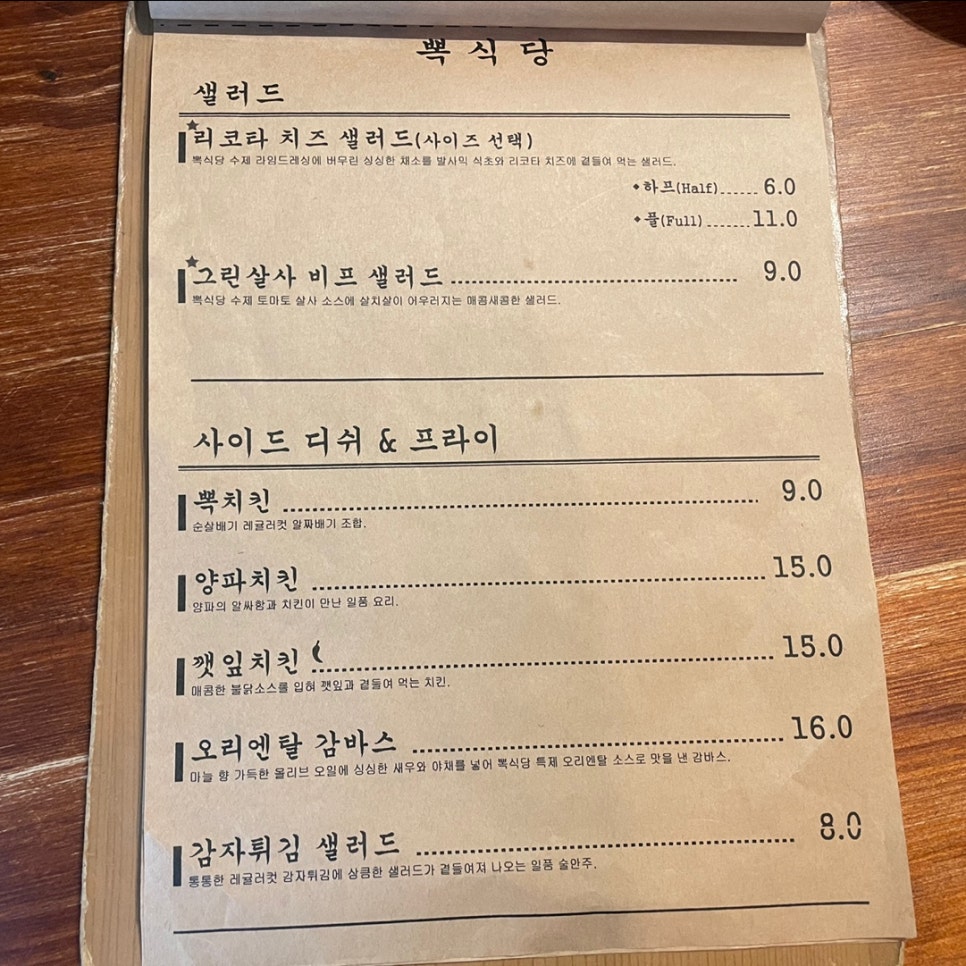 뽁식당
샐러드
★리코타 치즈 샐러드(사이즈 선택)
뽁식당 수제 라임드레싱에 버무린 싱싱한 채소를 발사믹 식초와 리코타 치즈에 곁들여 먹는 샐러드.
◆하프(Half)......6.0
◆풀(Full).......11.0
★그린살사 비프 샐러드 ........ 9.0
뽁식당 수제 토마토 살사 소스에 살치살이 어우러지는 매콤새콤한 샐러드.
사이드 디쉬 & 프라이
뽁치킨 ........ 9.0
순살배기 레귤러컷 알짜배기 조합.
양파치킨 ........ 15.0
양파의 알싸함과 치킨이 만난 일품 요리.
깻잎치킨 ........ 15.0
매콤한 불닭소스를 입혀 깻잎과 곁들여 먹는 치킨.
오리엔탈 감바스 ........ 16.0
마늘 향 가득한 올리브 오일에 싱싱한 새우와 야채를 넣어 뽁식당 특제 오리엔탈 소스로 맛을 낸 감바스.
감자튀김 샐러드 ........ 8.0
통통한 레귤러컷 감자튀김에 상큼한 샐러드가 곁들여져 나오는 일품 술안주.